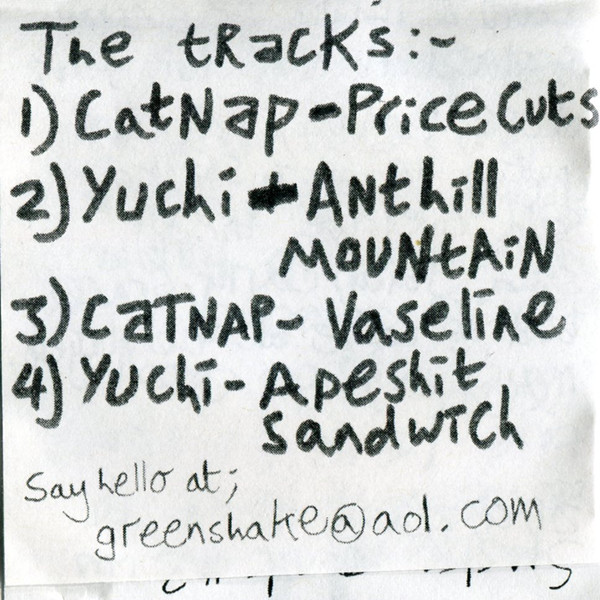 The tracks:-
1) CatNap - Price Cuts
2) Yuchi - Anthill
MOUNtAiN
3) CaTNAP - Vaseline
4) Yuchi - Apeshit
Sandwich
Say hello at;
greenshake@aol.com